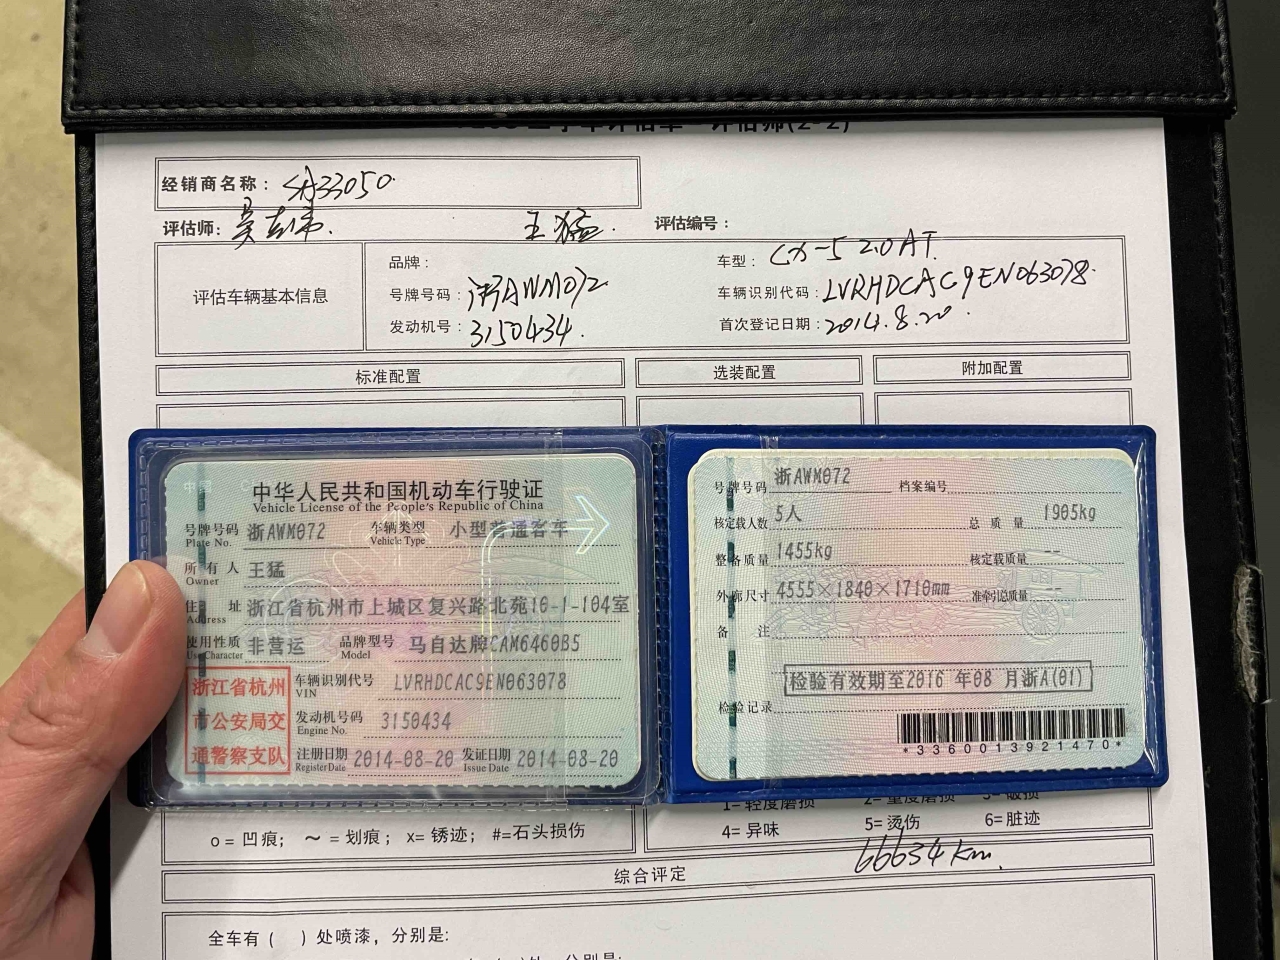 评估师(2-2)
经销商名称：SA33050
评估师: 王猛. 评估编号：
评估车辆基本信息
品牌： 车型：CX-5 2.0AT.
号牌号码：浙AWM072 车辆识别代码：LVRHDCAC9EN063078.
发动机号：3150434. 首次登记日期：2014.8.20.
标准配置 选装配置 附加配置
中华人民共和国机动车行驶证
Vehicle License of the People's Republic of China
号牌号码 浙AWM072 车辆类型 小型普通客车
Plate No. Vehicle Type
所有人 王猛
Owner
住址 浙江省杭州市上城区复兴路北苑10-1-104室
Address
使用性质 非营运 品牌型号 马自达牌CAM6460B5
Use Character Model
浙江省杭州
市公安局交
通警察支队
车辆识别代号 LVRHDCAC9EN063078
VIN
发动机号码 3150434
Engine No.
注册日期 2014-08-20 发证日期 2014-08-20
Register Date Issue Date
号牌号码 浙AWM072 档案编号
核定载人数 5人 总质量 1905kg
整备质量 1455kg 核定载质量 --
外廓尺寸 4555×1840×1710mm 准牵引总质量 --
备注
检验有效期至2016年08月浙A(01)
检验记录
*3360013921470*
1=轻度磨损 2=重度磨损 3=破损
o=凹痕； ～=划痕；x=锈迹；#=石头损伤 4=异味 5=烫伤 6=脏迹
66634km.
综合评定
全车有（ ）处喷漆，分别是: